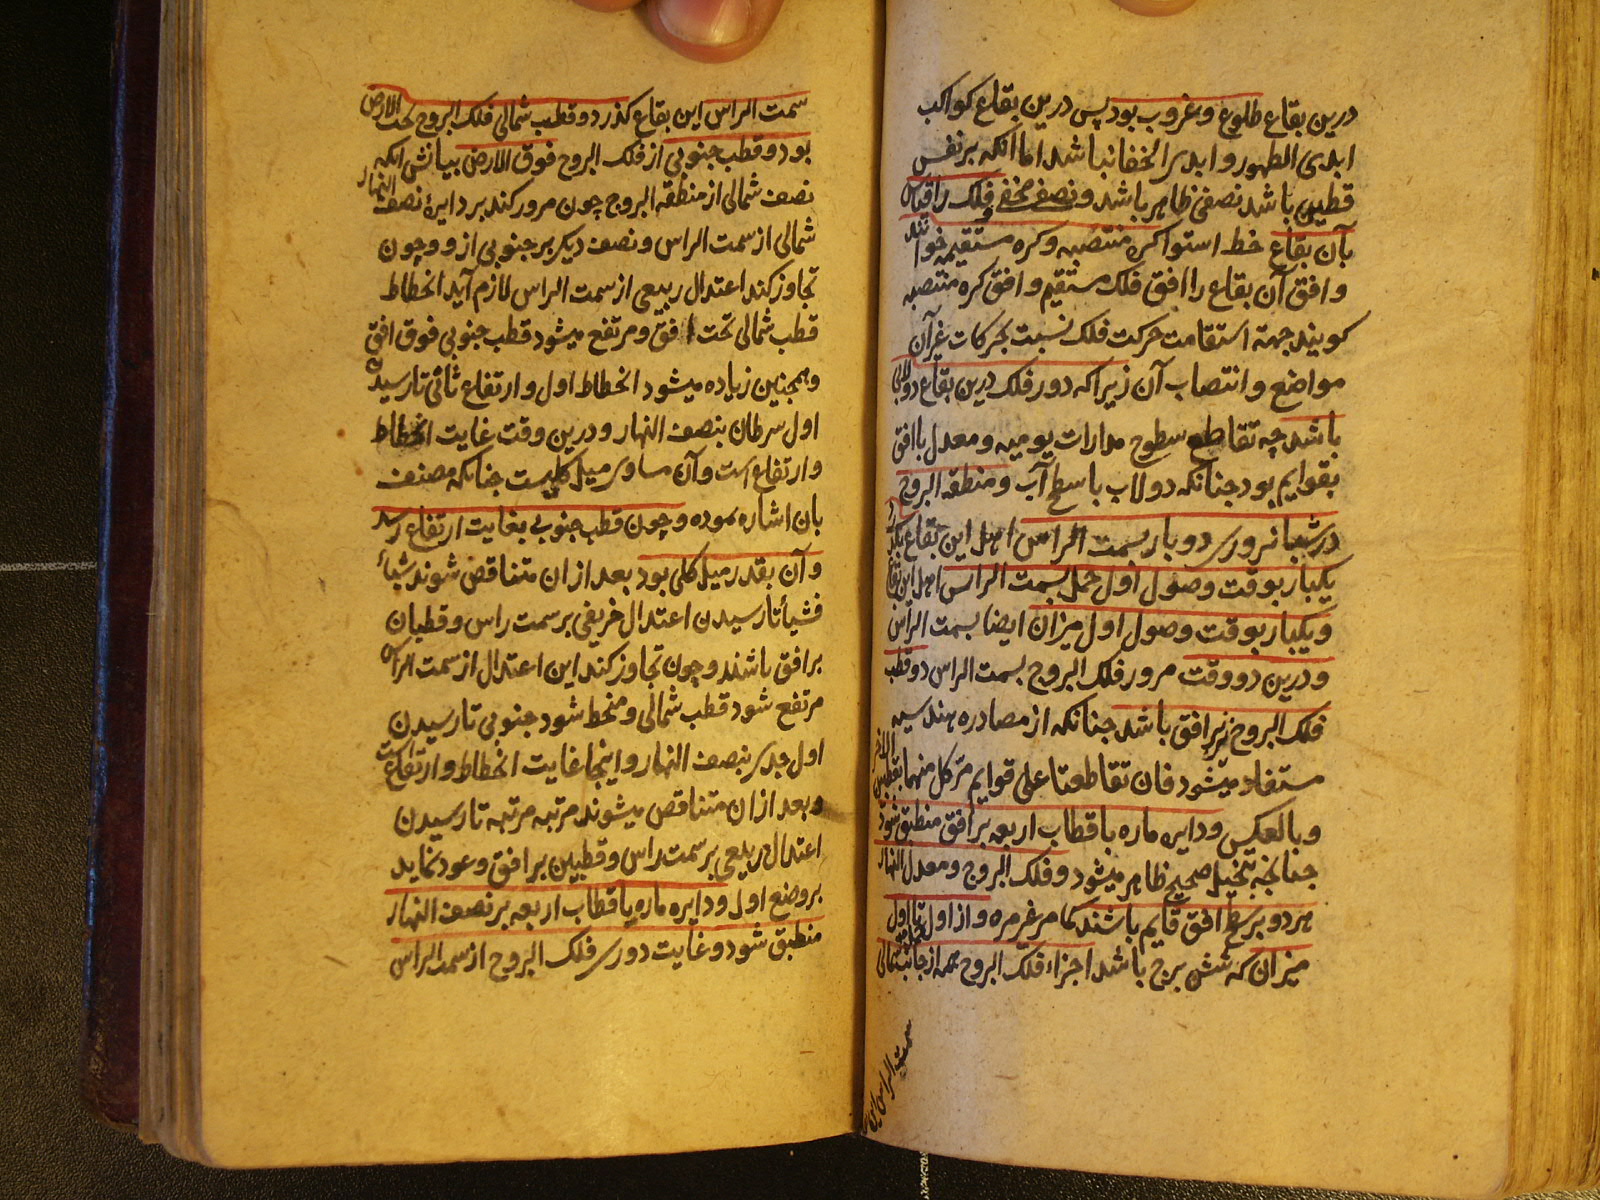 درین بقاع طلوع و غروب بود پس درین بقاع کواکب
ابدی الظهور و ابدی الخفا نباشد اما انکه بر نفس
قطبین باشد نصفی ظاهر باشد و نصفی مخفی و فلک را قیاس
بآن بقاع خط استوا کره منتصبه و کره مستقیمه خوانند
و افق آن بقاع را افق فلک مستقیم و افق کره منتصبه
کویند جهة استقامت حرکت فلک نسبت بحرکات غیر آن
مواضع و انتصاب آن زیرا که دور فلک درین بقاع دولابی
باشد چه تقاطع سطوح مدارات یومیه و معدل با افق
بقوایم بود جنانکه دولاب با سطح آب و منطقه البروج
در شبانروری دو بار بسمت الراس اهل این بقاع بکذرد
یکبار بوقت وصول اول حمل بسمت الراس اهل این بقاع
و یکبار بوقت وصول اول میزان ایضا بسمت الراس
و درین دو وقت مرور فلک البروج بسمت الراس دو قطب
فلک البروج بر افق باشد جنانکه از مصادره هندسیه
مستفاد میشود فان تقاطعتا علی قوایم مر کل منهما بقطبی الاخر
و بالعکس و دایره ماره باقطاب اربعه بر افق منطبق شود
جنانجه بتخیل صحیح ظاهر میشود و فلک البروج و معدل النهار
هر دو بر سطح افق قایم باشند کما مر غیر مره و از اول حمل تا اول
میزان که شش برج باشد اجزاء فلک البروج همه از جانب شمالی
سمت الراس این
سمت الراس این بقاع کذرد و قطب شمالی فلک البروج تحت الارض
بود و قطب جنوبی از فلک البروج فوق الارض بیانش انکه
نصف شمالی از منطقه البروج چون مرور کند بر دایرهٔ نصف النهار
شمالی از سمت الراس و نصف دیکر بر جنوبی ازو و چون
تجاوز کند اعتدال ربیعی از سمت الراس لازم آید انحطاط
قطب شمالی تحت افق و مرتفع میشود قطب جنوبی فوق افق
و همجنین زیاده میشود انحطاط اول و ارتفاع ثانی تا رسیدن
اول سرطان بنصف النهار و درین وقت غایت انحطاط
و ارتفاع است و آن مساوی میل کلیست جنانکه مصنف
بان اشاره نموده و چون قطب جنوبی بغایت ارتفاع رسد
و آن بقدر میل کلی بود بعد ازان متناقص شوند شیأ
فشیأ تا رسیدن اعتدال خریفی بر سمت راس و قطبان
بر افق باشند و چون تجاوز کند این اعتدال از سمت الراس
مرتفع شود قطب شمالی و منحط شود جنوبی تا رسیدن
اول جدی بنصف النهار و اینجا غایت انحطاط و ارتفاعست
و بعد ازان متناقص میشوند مرتبه مرتبه تا رسیدن
اعتدال ربیعی بر سمت راس و قطبین بر افق و عود نماید
بر وضع اول و دایره ماره باقطاب اربعه بر نصف النهار
منطبق شود و غایت دوری فلک البروج از سمت الراس